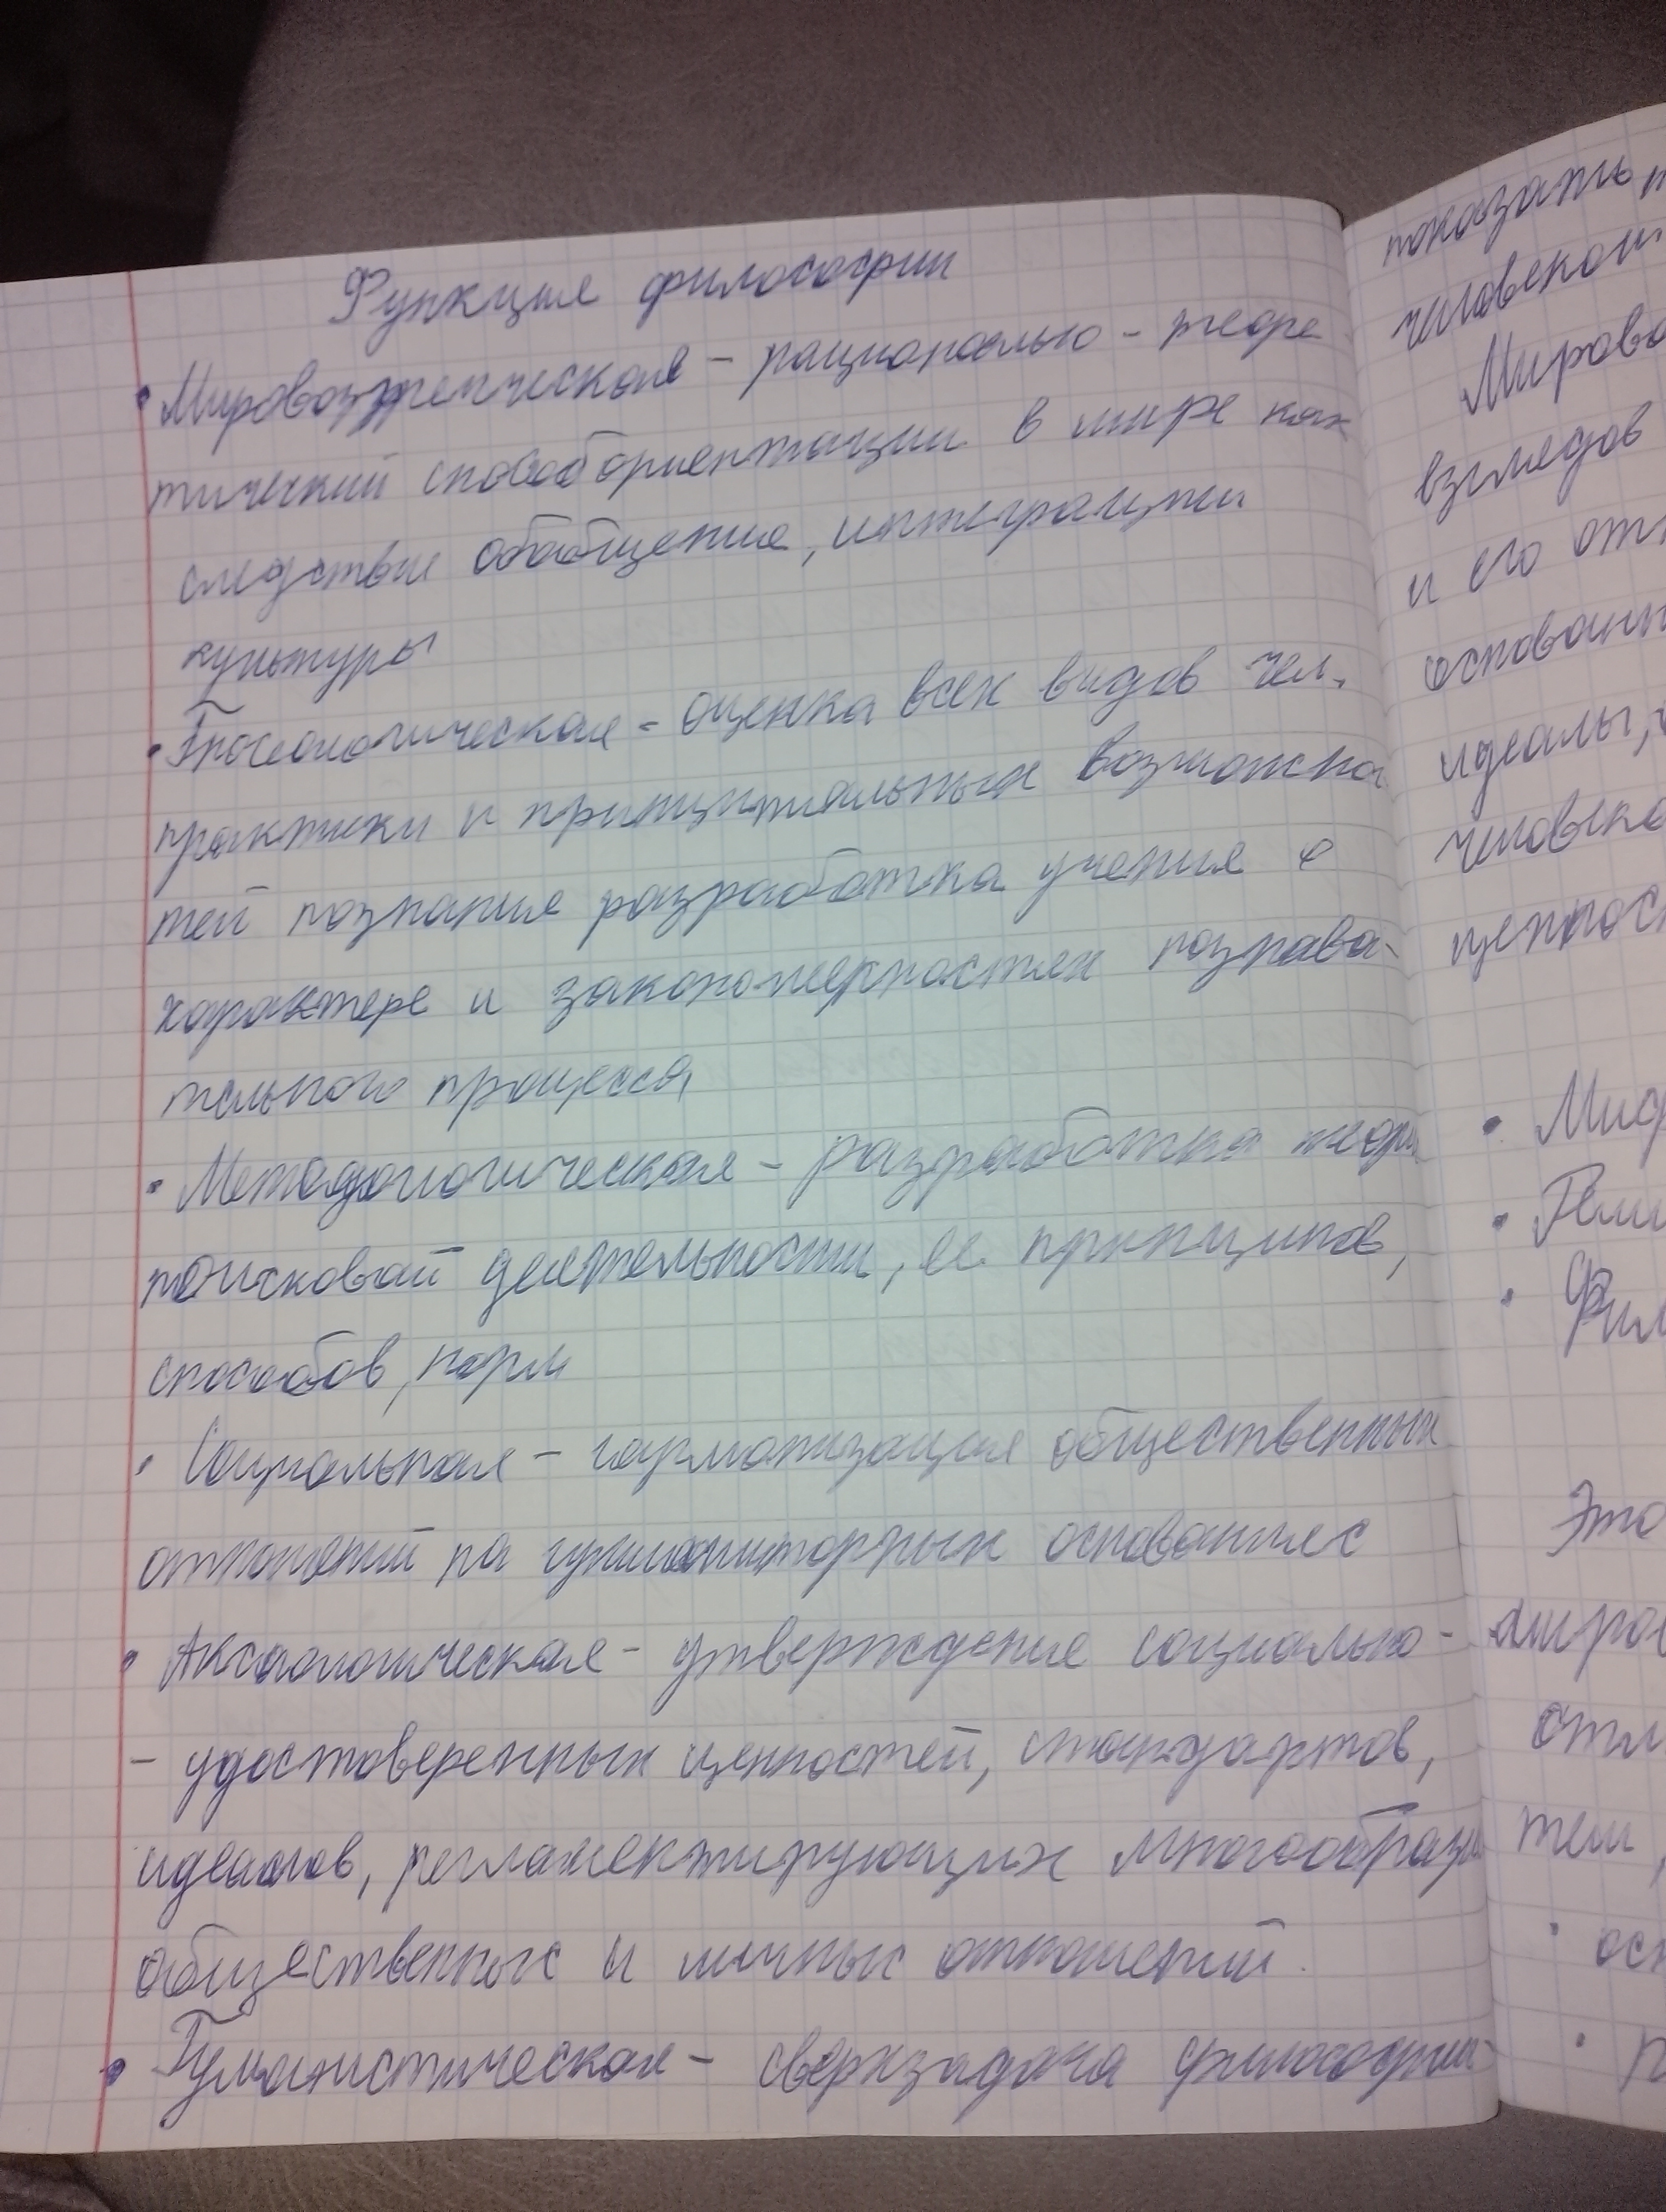 Функция философии
• Мировоззренческая - рационально - теоре
тический способ ориентации в мире как
следствие обобщения, интеграции
культуры
• Гносеологическая - оценка всех видов чел.
практики и принципиальных возможно
тей познания разработка учения о
характере и закономерностях познава-
тельного процесса
• Методологическая - разработка теори
поисковой деятельности, ее принципов,
способов, норм
• Социальная - гармонизация общественных
отношений на гуманиторрных основаниях
• Аксиологическая - утверждение социально -
- удостоверенных ценностей, стандартов,
идеалов, регламентирующих многообрази
общественных и личных отношений.
• Гуманистическая - сверхзадача философии-
показать
человеком
Мирово
взглядов
и его отн
основани
идеалы,
человека
ценност
• Миф
• Рели
• Фил
Это
миров
отл
тем,
• осн